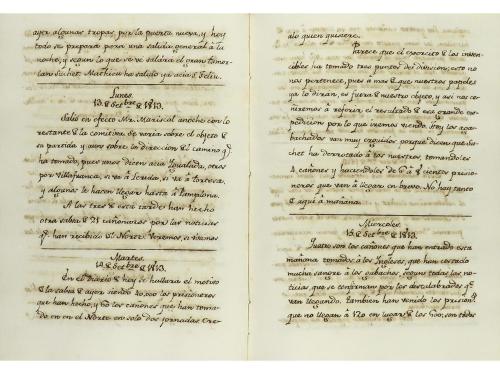 ayer algunas tropas por la puerta nueva, y hoy
todo se prepara para una salida general á la
noche, y segun lo que he ve salára el gran tamor-
lan Suchet. Mathieu ha salido ya acia S. Feliu.
Lunes.
13 € Setbre € 1813.
Salió en efecto Mr. Mariscal anoche con lo
restante € la comitiva se varía sobre el objeto €
su partida y aun sobre la direccion € l camino q.e
ha tomado, pues unos dicen acia Igualada, otros
por Villafranca, si va á Lérida, si va á Tortosa,
y algunos le hacen llegar hasta á Pamplona.
A las tres € esta tarde han hecho
otra salva € 21 cañonazos por las noticias
q.e han recibido € l Norte. Veremos, si vivimos
Martes.
14 € Setbre € 1813.
En el Diario € hoy se hallará el motivo
€ la salva € ayer siendo 40,000 los prisioneros
que han hecho, y 60 los cañones que han toma-
do en en el Norte en solo dos jornadas. Cre-
alo quien quisiere.
Parece que el exercito € los inven-
cibles ha tomado tres puntos de division; esto no
nos pertenece, pues á mas € que nuestros papeles
ya lo dirán, es fuera € nuestro objeto, y asi nos
ceñiremos á referir el resultado € esa grande ex-
pedicion por lo que iremos viendo. Hoy los gab-
bachados van muy erguidos porque dicen que Su-
chet ha derrotado á los nuestros, tomandoles
4 cañones y haciendoles de 6 á 8 cientos prisio-
neros que van á llegar en breve. No hay tanto
€ aqui á mañana.
Miercoles.
15 € Setbre € 1813.
Quatro son los cañones que han entrado esta
mañana tomados á los Ingleses, que han costado
mucha sangre á los gabachos, segun todas las no-
ticias que se confirman por los descalabrados q.e
ven llegando. Tambien han venido los prision.s
que no llegan á 120 en lugar € los 600; son todos